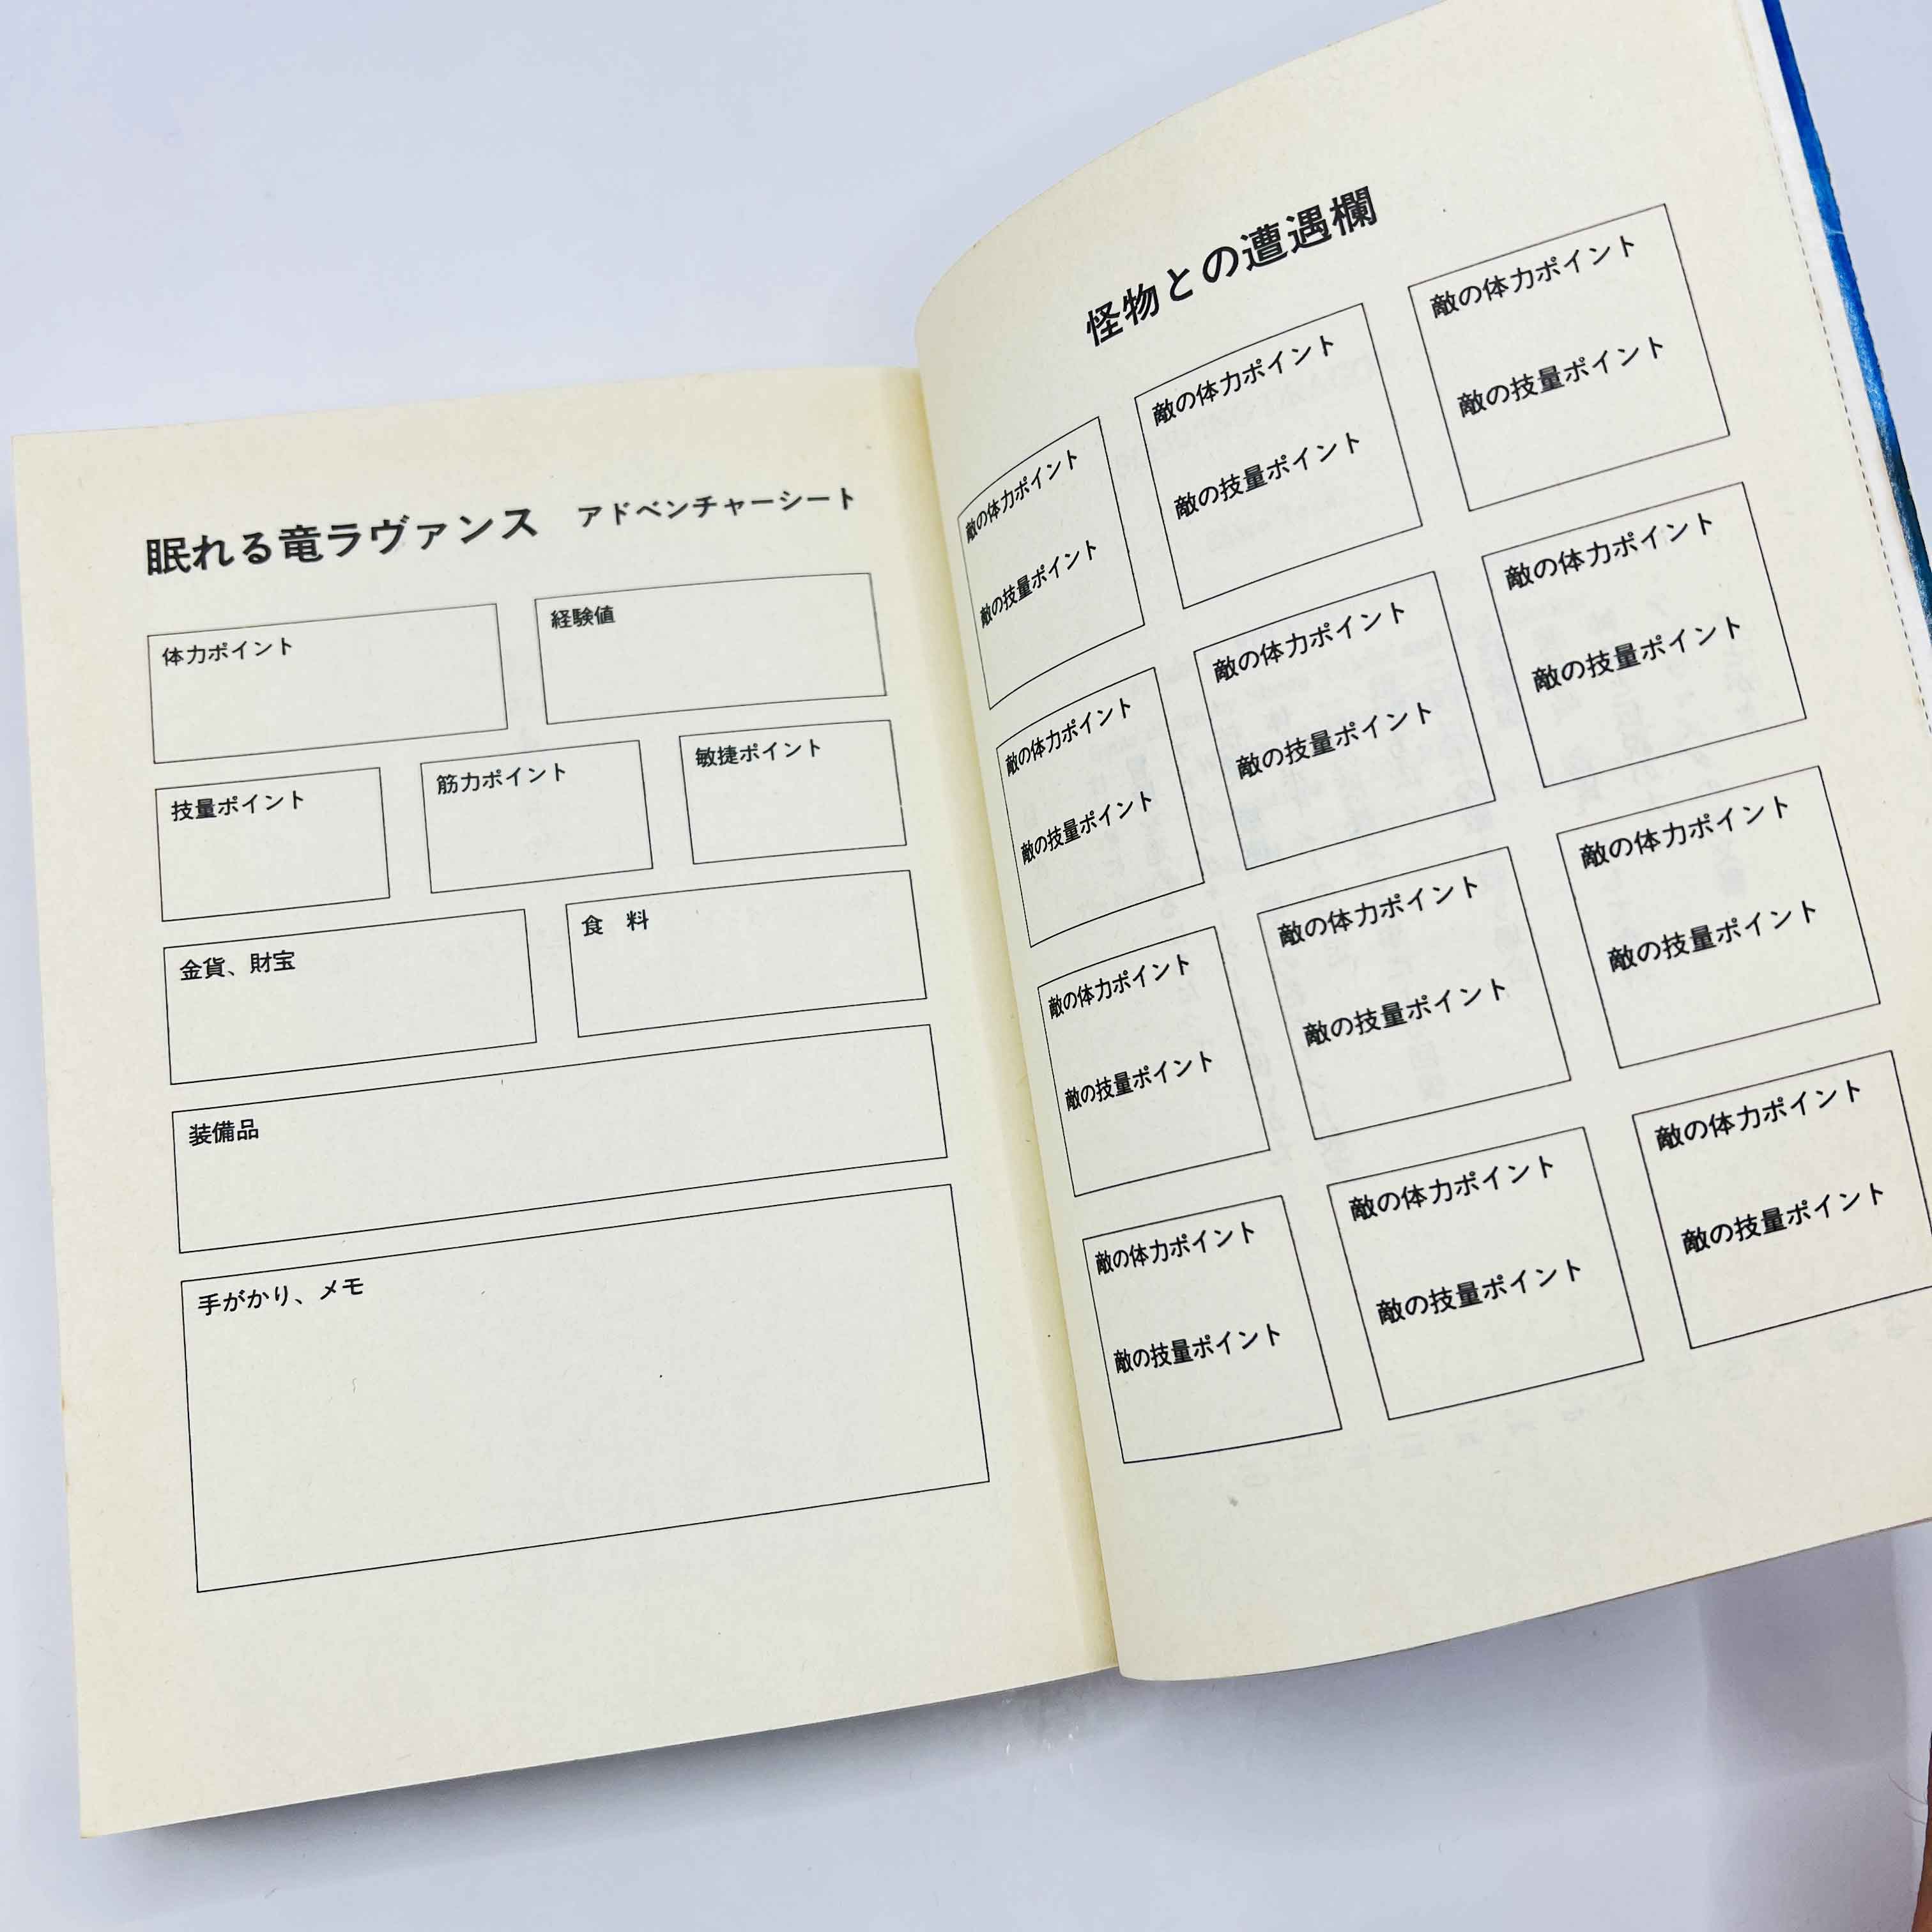 眠れる竜ラヴァンス　アドベンチャーシート
体力ポイント
経験値
技量ポイント
筋力ポイント
敏捷ポイント
金貨、財宝
食　料
装備品
手がかり、メモ
怪物との遭遇欄
敵の体力ポイント
敵の技量ポイント
敵の体力ポイント
敵の技量ポイント
敵の体力ポイント
敵の技量ポイント
敵の体力ポイント
敵の技量ポイント
敵の体力ポイント
敵の技量ポイント
敵の体力ポイント
敵の技量ポイント
敵の体力ポイント
敵の技量ポイント
敵の体力ポイント
敵の技量ポイント
敵の体力ポイント
敵の技量ポイント
敵の体力ポイント
敵の技量ポイント
敵の体力ポイント
敵の技量ポイント
敵の体力ポイント
敵の技量ポイント